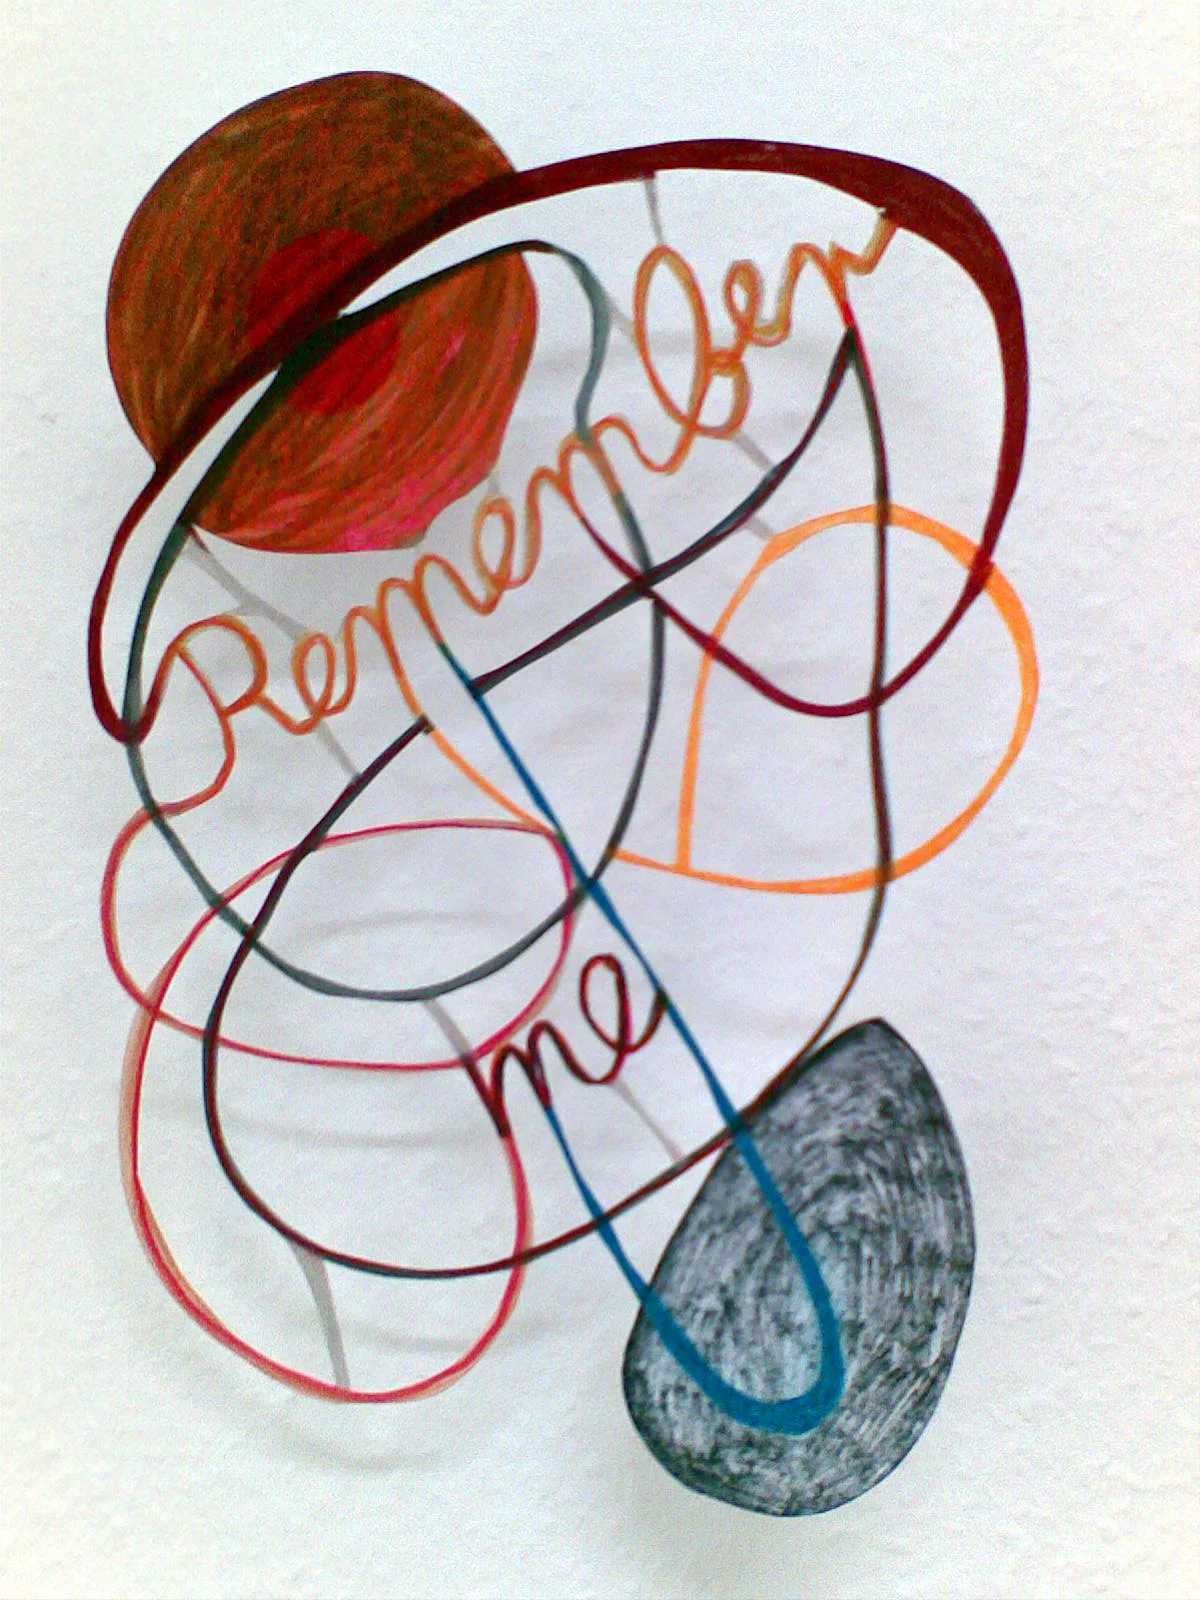 Remember
me